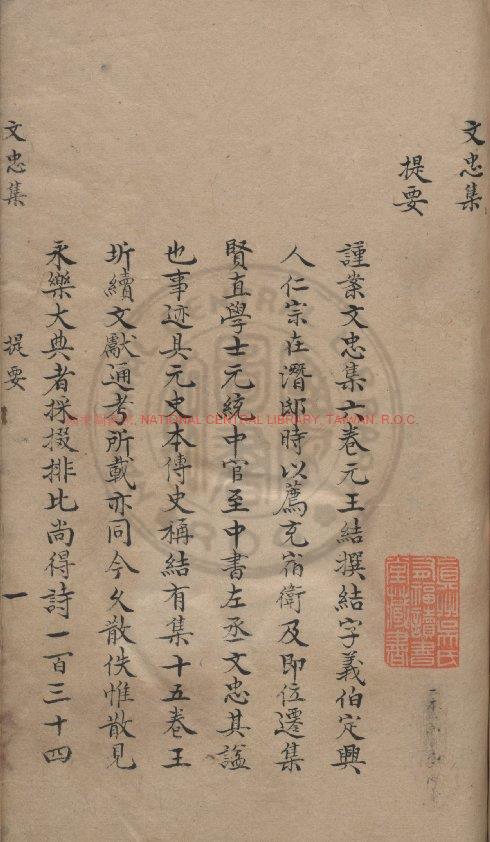 文忠集
提要
謹案文忠集六卷元王結撰結字義伯定興
人仁宗在潛邸時以薦充宿衛及即位遷集
賢直學士元統中官至中書左丞文忠其諡
也事迹具元史本傳史稱結有集十五卷王
圻續文獻通考所載亦同今久散佚惟散見
永樂大典者採掇排比尚得詩一百三十四
文忠集
提要
一
NATIONAL CENTRAL LIBRARY, TAIWAN. R.O.C.